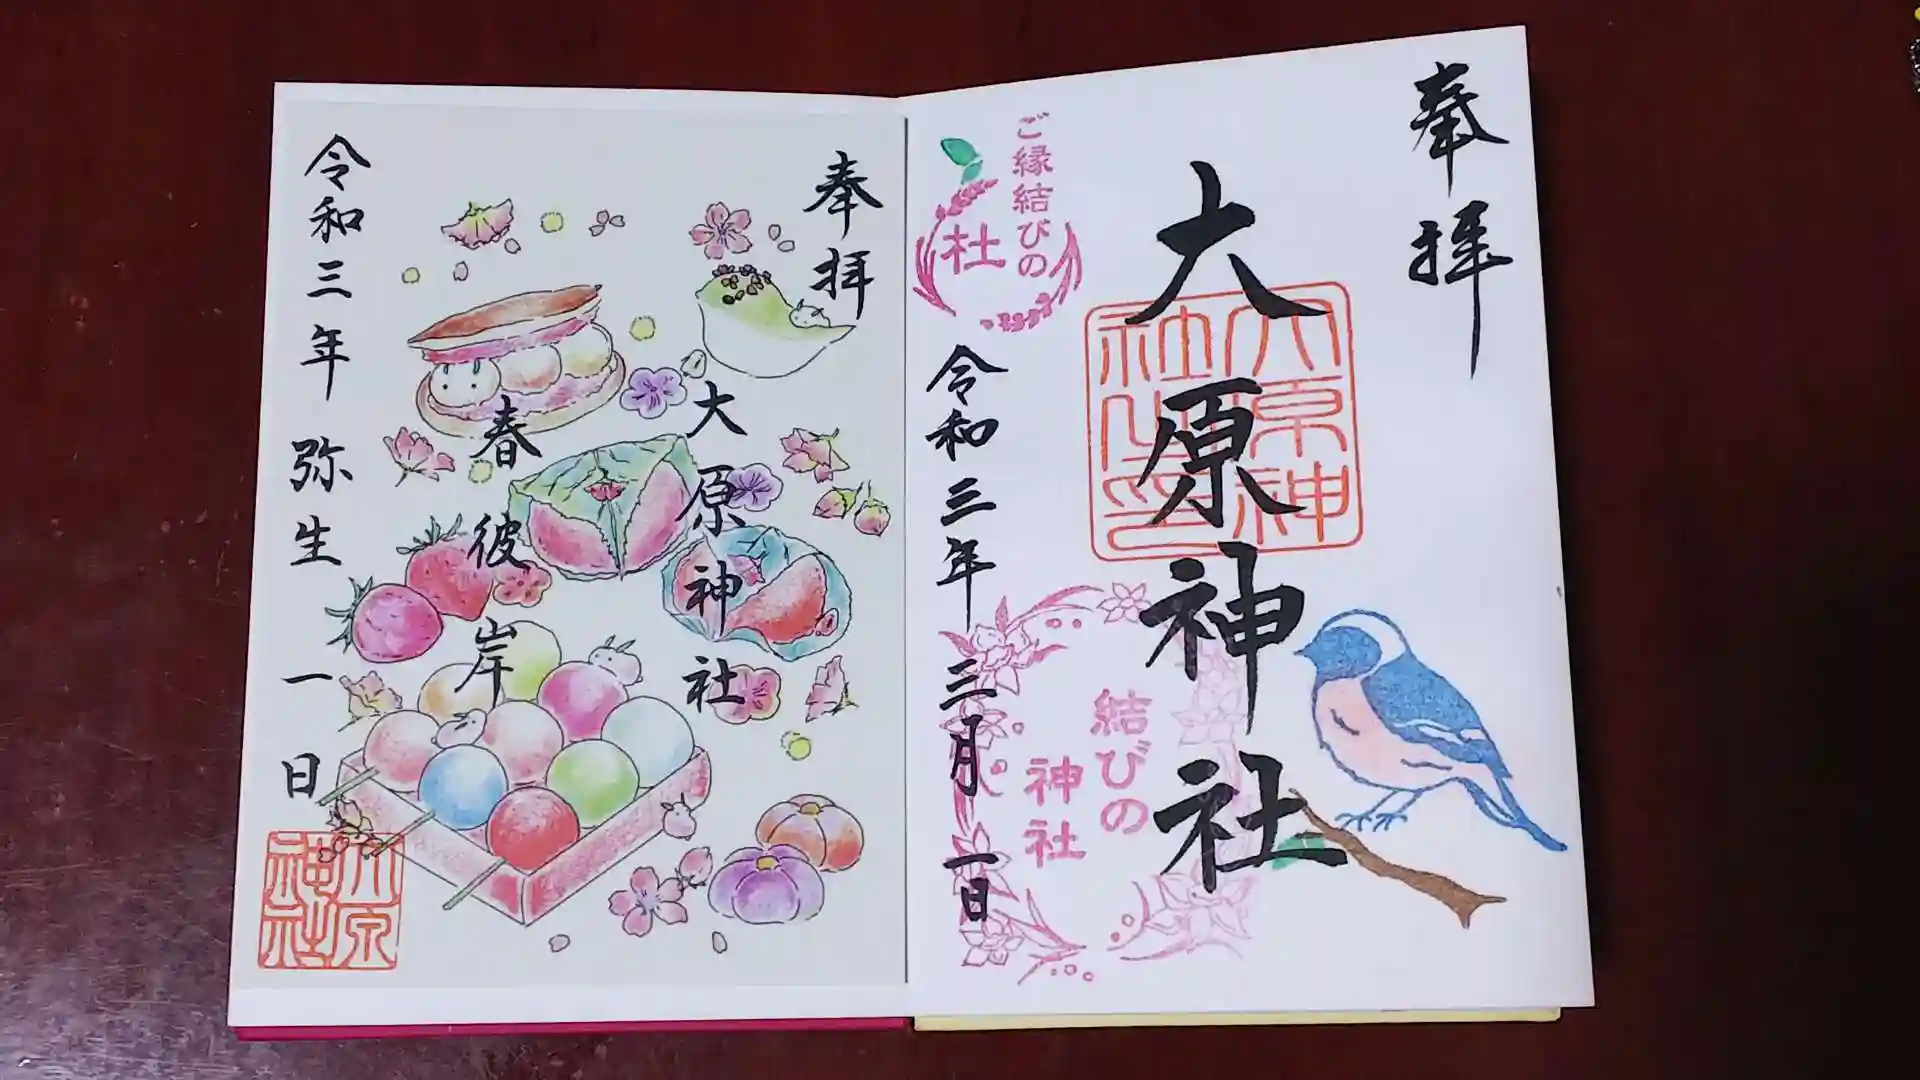 奉拝
大原神社
大原神社之印
ご縁結びの
杜
令和三年 三月 一日
結びの
神社
奉拝
大原神社
春彼岸
令和三年 弥生 一日
大原神社